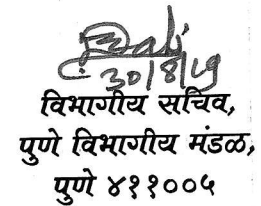 30/8/19
विभागीय सचिव,
पुणे विभागीय मंडळ,
पुणे ४११००५